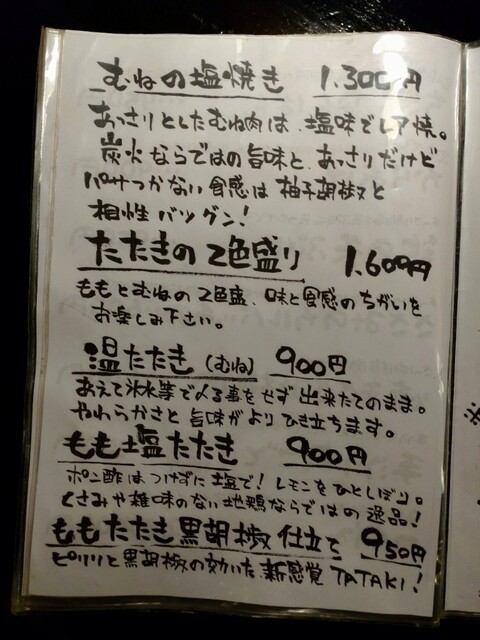 むねの塩焼き 1.300円
あっさりとしたむね肉は、塩味でレア焼。
炭火ならではの旨味と、あっさりだけど
パサつかない食感は柚子胡椒と
相性バツグン!
たたきの2色盛り 1.600円
ももとむねの2色盛、味と食感のちがいを
お楽しみ下さい。
温たたき(むね) 900円
あえて氷水等で〆る事をせず出来たてのまま。
やわらかさと旨味がよりひき立ちます。
もも塩たたき 900円
ポン酢はつけずに塩で!レモンをひとしぼり。
くさみや雑味のない地鶏ならではの逸品!
ももたたき黒胡椒仕立て 950円
ピリリと黒胡椒の効いた新感覚TATAKI!